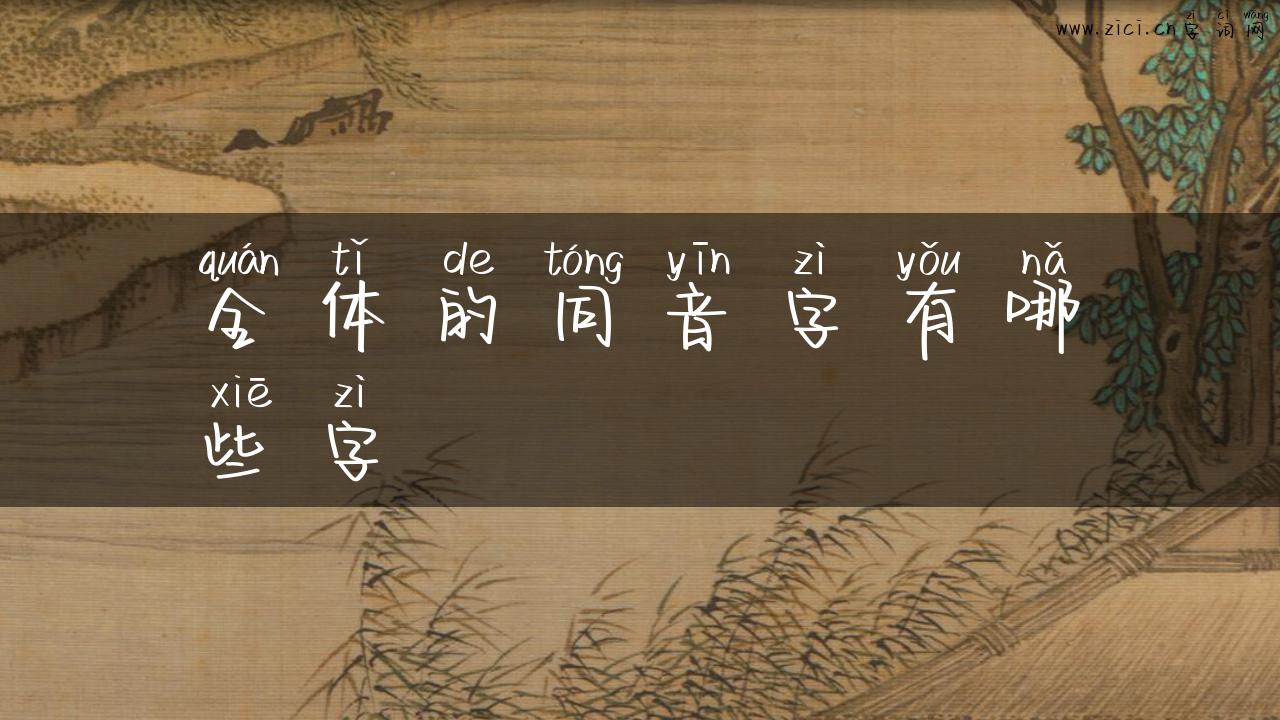 zì cí wǎng
www.zici.cn字词网
quán tǐ de tóng yīn zì yǒu nǎ
全体的同音字有哪
xiē zì
些字